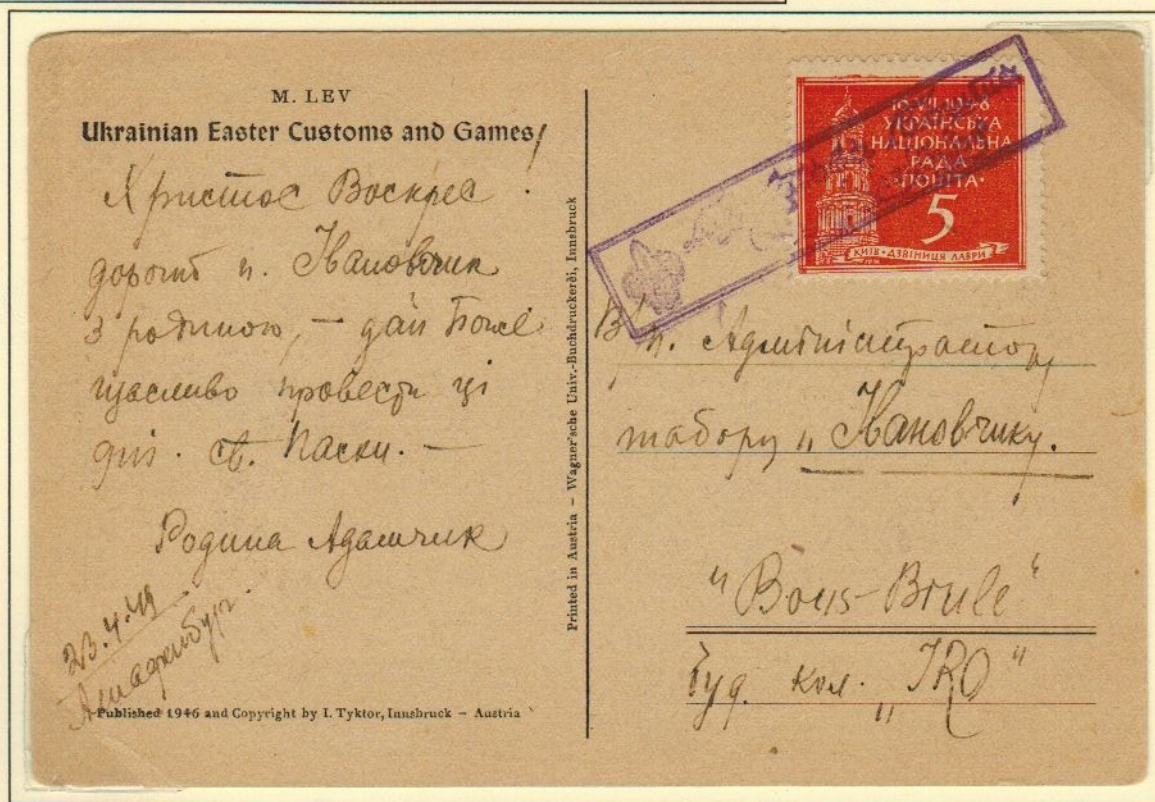 M. LEV
Ukrainian Easter Customs and Games
Христос Воскрес!
дорогий п. Івановчик
з родиною, – дай Боже
щасливо провести ці
дні. св. Паски. –
Родина Адамчик
23.4.49
Ашафенбург.
Published 1946 and Copyright by I. Tyktor, Innsbruck – Austria
Printed in Austria – Wagner'sche Univ.-Buchdruckerei, Innsbruck
16.VII.1948
УКРАЇНСЬКА
НАЦІОНАЛЬНА
РАДА
·ПОШТА·
5
КИЇВ·ДЗВІНИЦЯ ЛАВРИ
В/п. Адміністратору
табору „Івановчику.
"Bois-Brule"
буд. кол. „IRO"